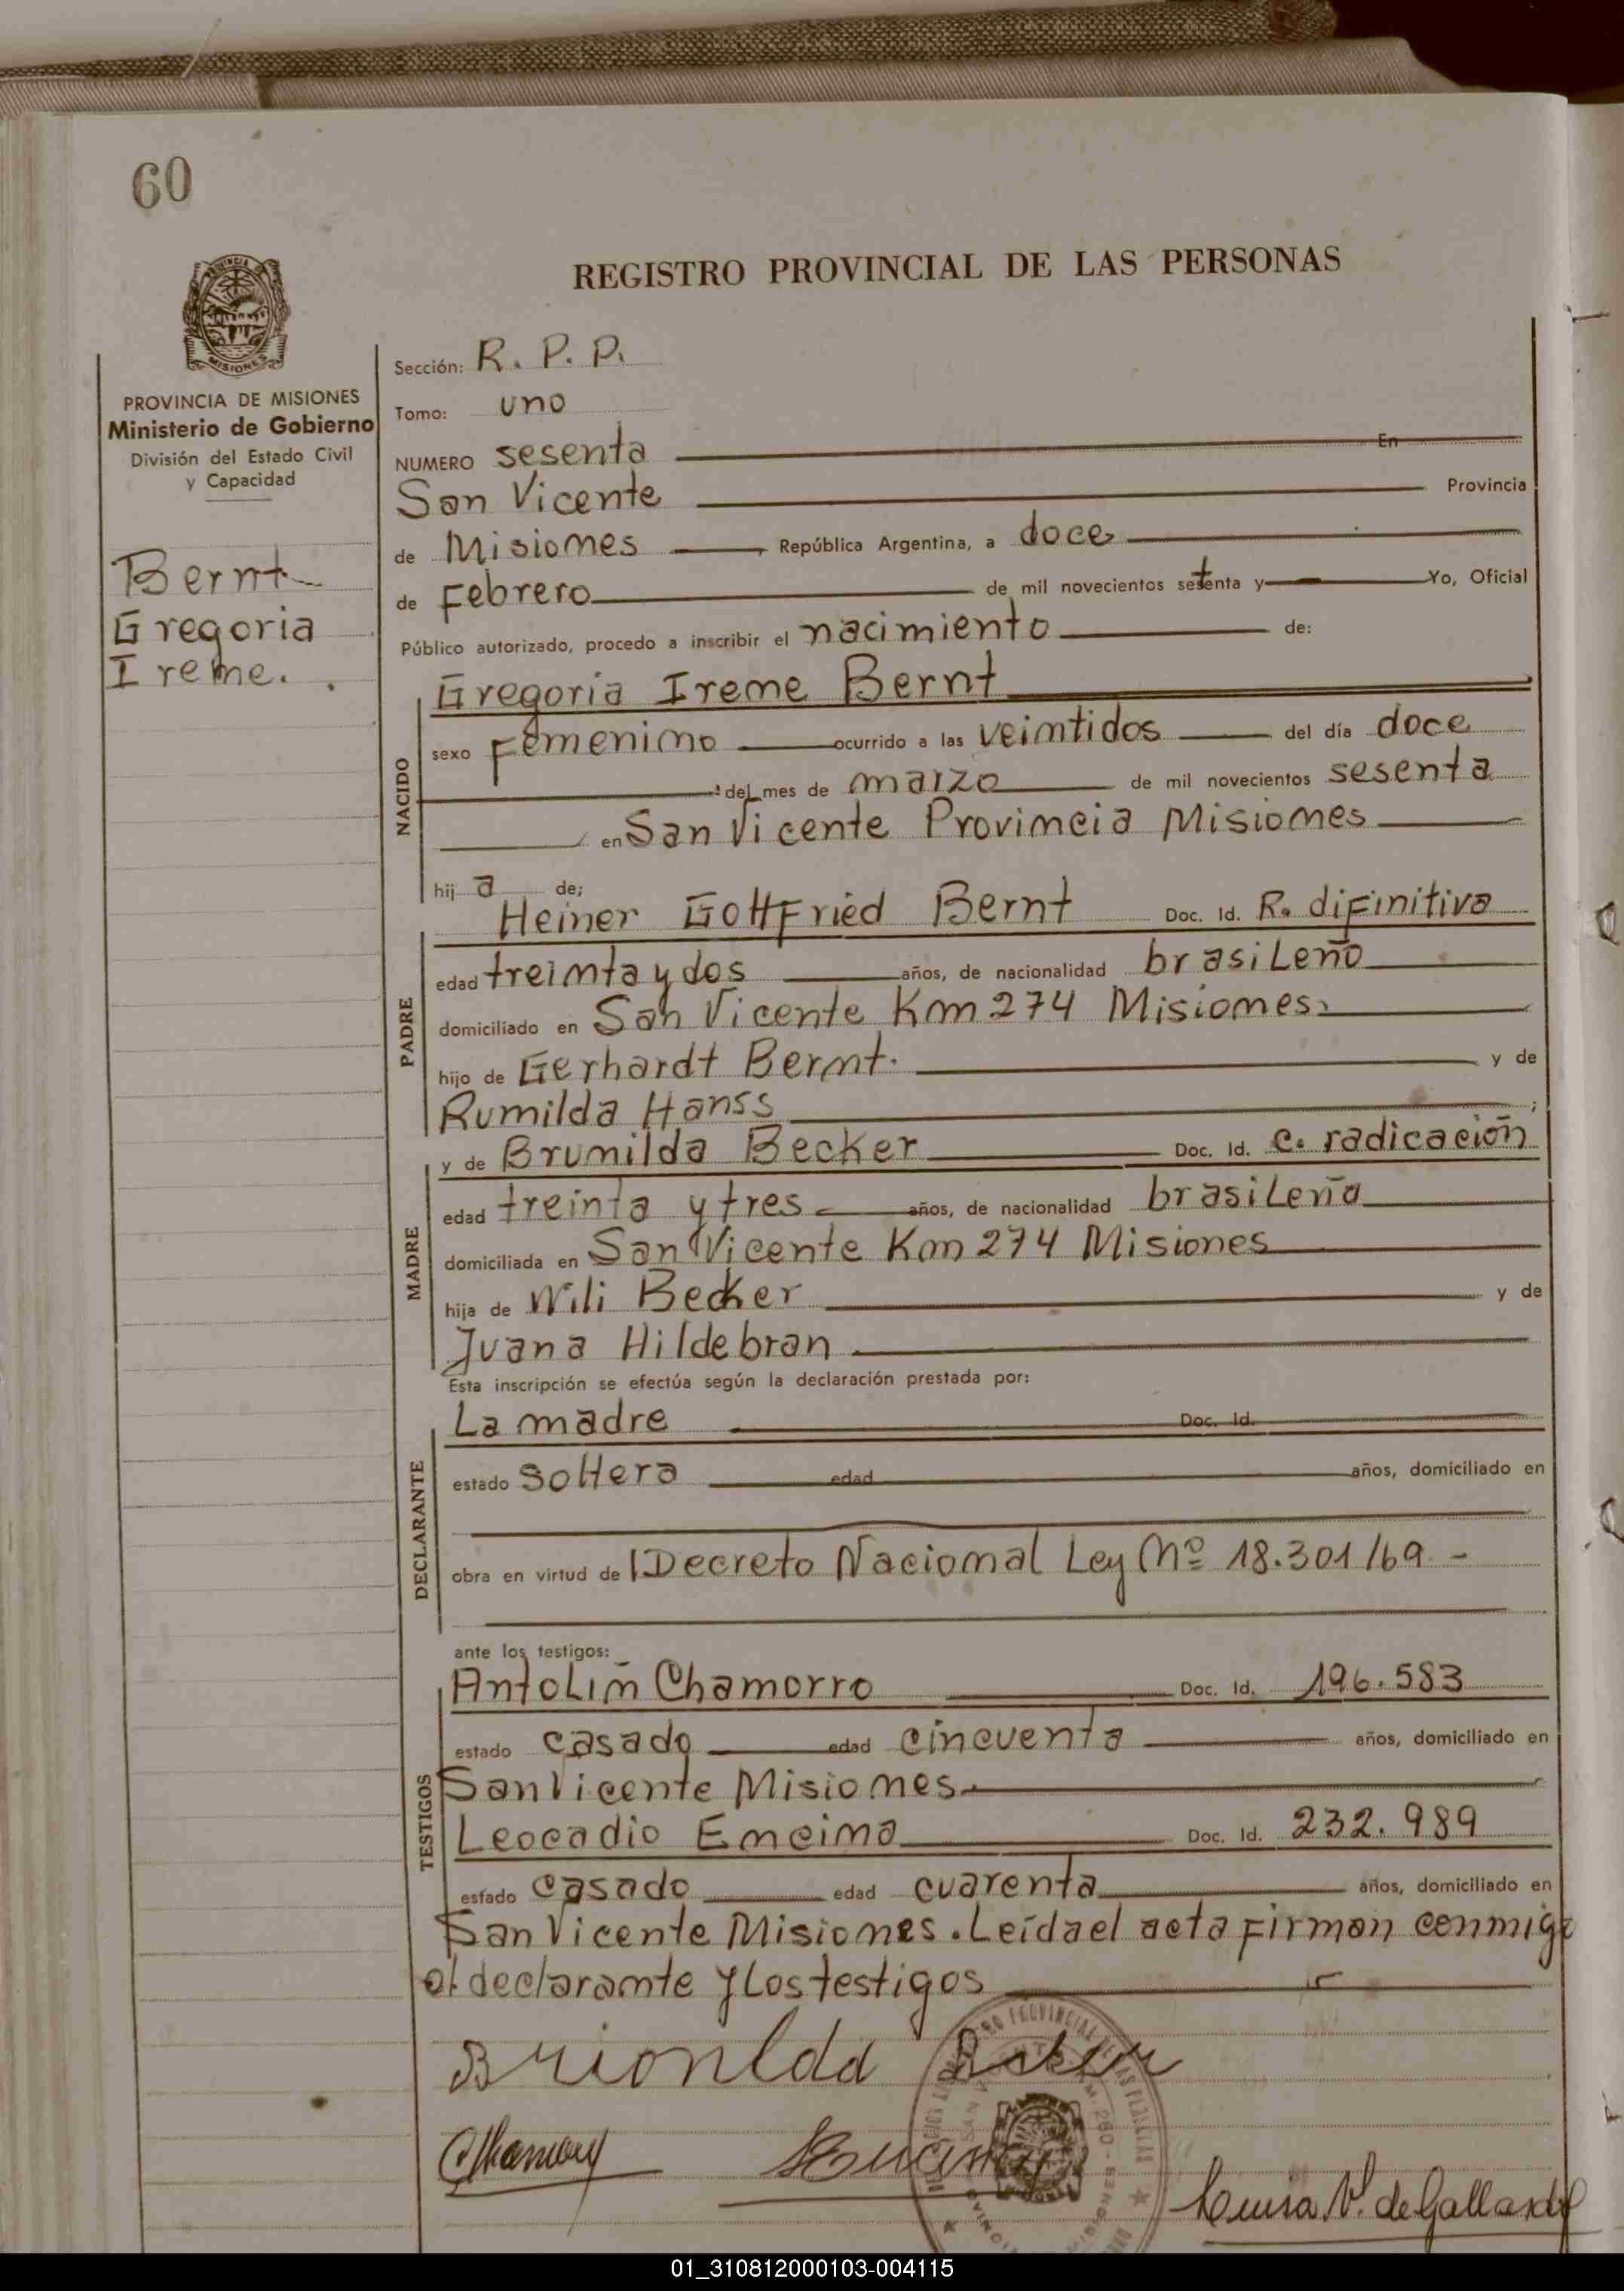 60
REGISTRO PROVINCIAL DE LAS PERSONAS
MISIONES
PROVINCIA DE MISIONES
Ministerio de Gobierno
División del Estado Civil
y Capacidad
Bernt
Gregoria
Ireme.
Sección: R. P. P.
Tomo: uno
NUMERO sesenta En
San Vicente Provincia
de Misiones, República Argentina, a doce
de Febrero de mil novecientos setenta y Yo, Oficial
Público autorizado, procedo a inscribir el nacimiento de:
Gregoria Ireme Bernt
NACIDO
sexo Femenino ocurrido a las veintidos del día doce
del mes de marzo de mil novecientos sesenta
en San Vicente Provincia Misiones
hija de;
PADRE
Heiner Gottfried Bernt Doc. Id. R. difinitiva
edad treinta y dos años, de nacionalidad brasileño
domiciliado en San Vicente Km 274 Misiones
hijo de Gerhardt Bernt. y de
Rumilda Hanss;
MADRE
y de Brunilda Becker Doc. Id. c. radicación
edad treinta y tres años, de nacionalidad brasileña
domiciliada en San Vicente Km 274 Misiones
hija de Wili Becker y de
Juana Hildebran
Esta inscripción se efectúa según la declaración prestada por:
DECLARANTE
La madre Doc. Id.
estado soltera edad años, domiciliado en
obra en virtud de Decreto Nacional Ley Nº 18.301/69 -
ante los testigos:
TESTIGOS
Antolin Chamorro Doc. Id. 196.583
estado casado edad cincuenta años, domiciliado en
San Vicente Misiones
Leocadio Encina Doc. Id. 232.989
estado casado edad cuarenta años, domiciliado en
San Vicente Misiones. Leída el acta firman conmigo
el declarante y los testigos
Chamorro
Encina
Luisa V. de Gallardo
01_310812000103-004115